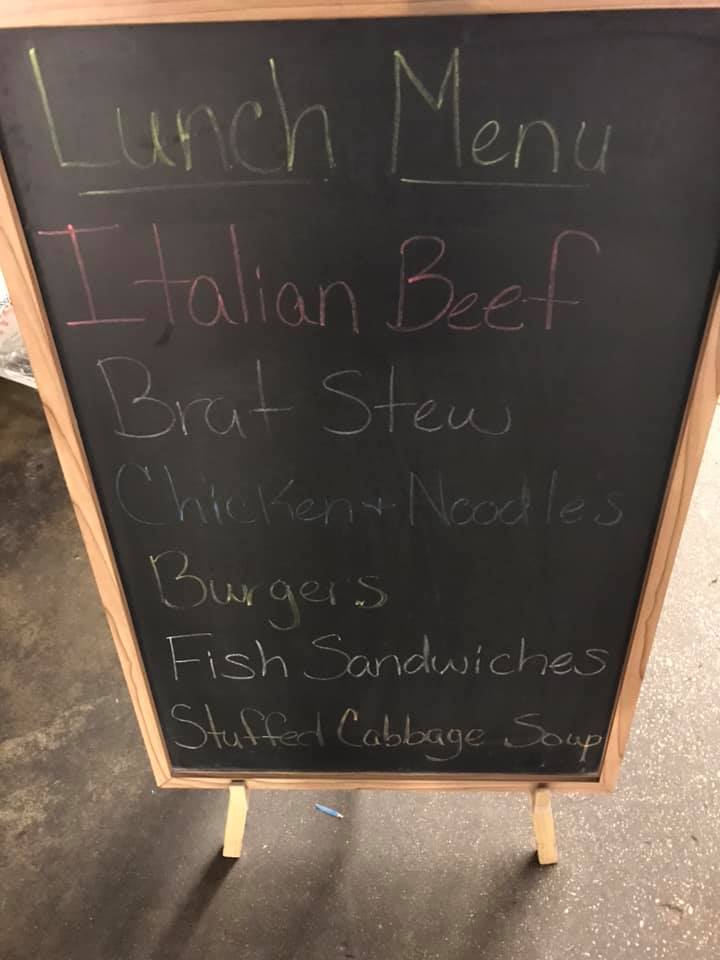 Lunch Menu
Italian Beef
Brat Stew
Chicken + Noodles
Burgers
Fish Sandwiches
Stuffed Cabbage Soup